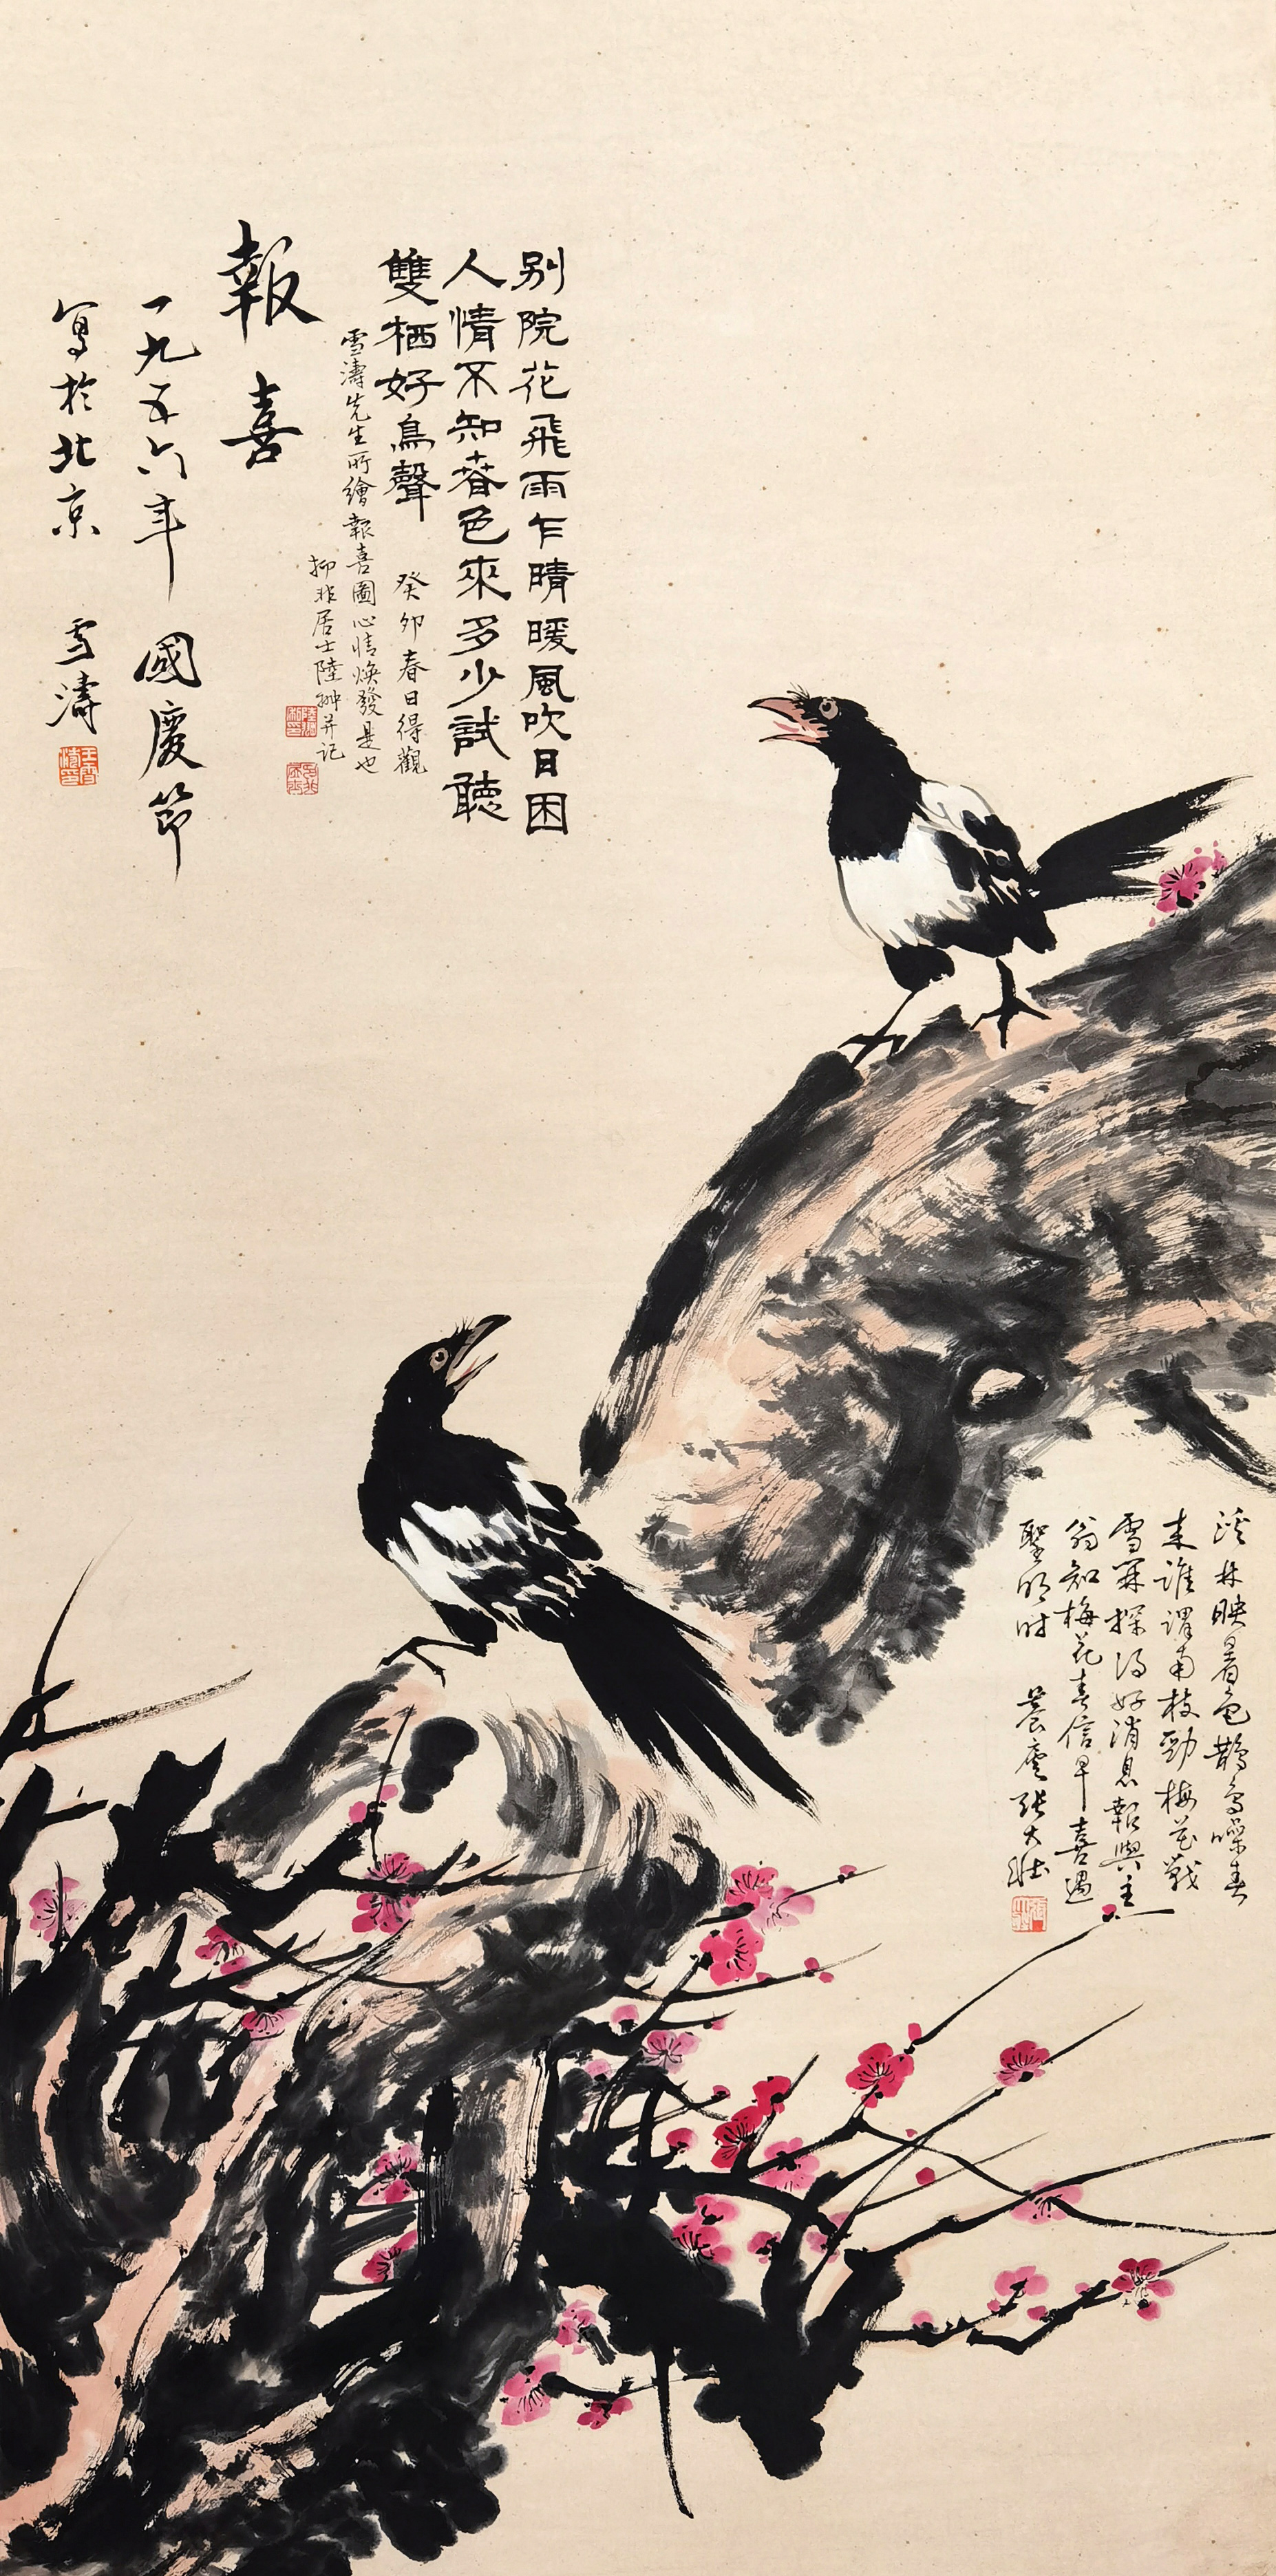 别院花飛雨乍晴暖風吹日困
人情不知春色來多少試聽
雙栖好鳥聲 癸卯春日得觀
雪濤先生所繪報喜圖心情煥發是也
抑非居士陸翀并記
報喜
一九五六年國慶節
寫於北京 雪濤
王雪濤印
溪林映暑色鵲鳥噪春
來誰謂南枝勁梅花戰
雪開探得好消息報與主
翁知梅花春信早喜遇
聖明時 養廬張大壯